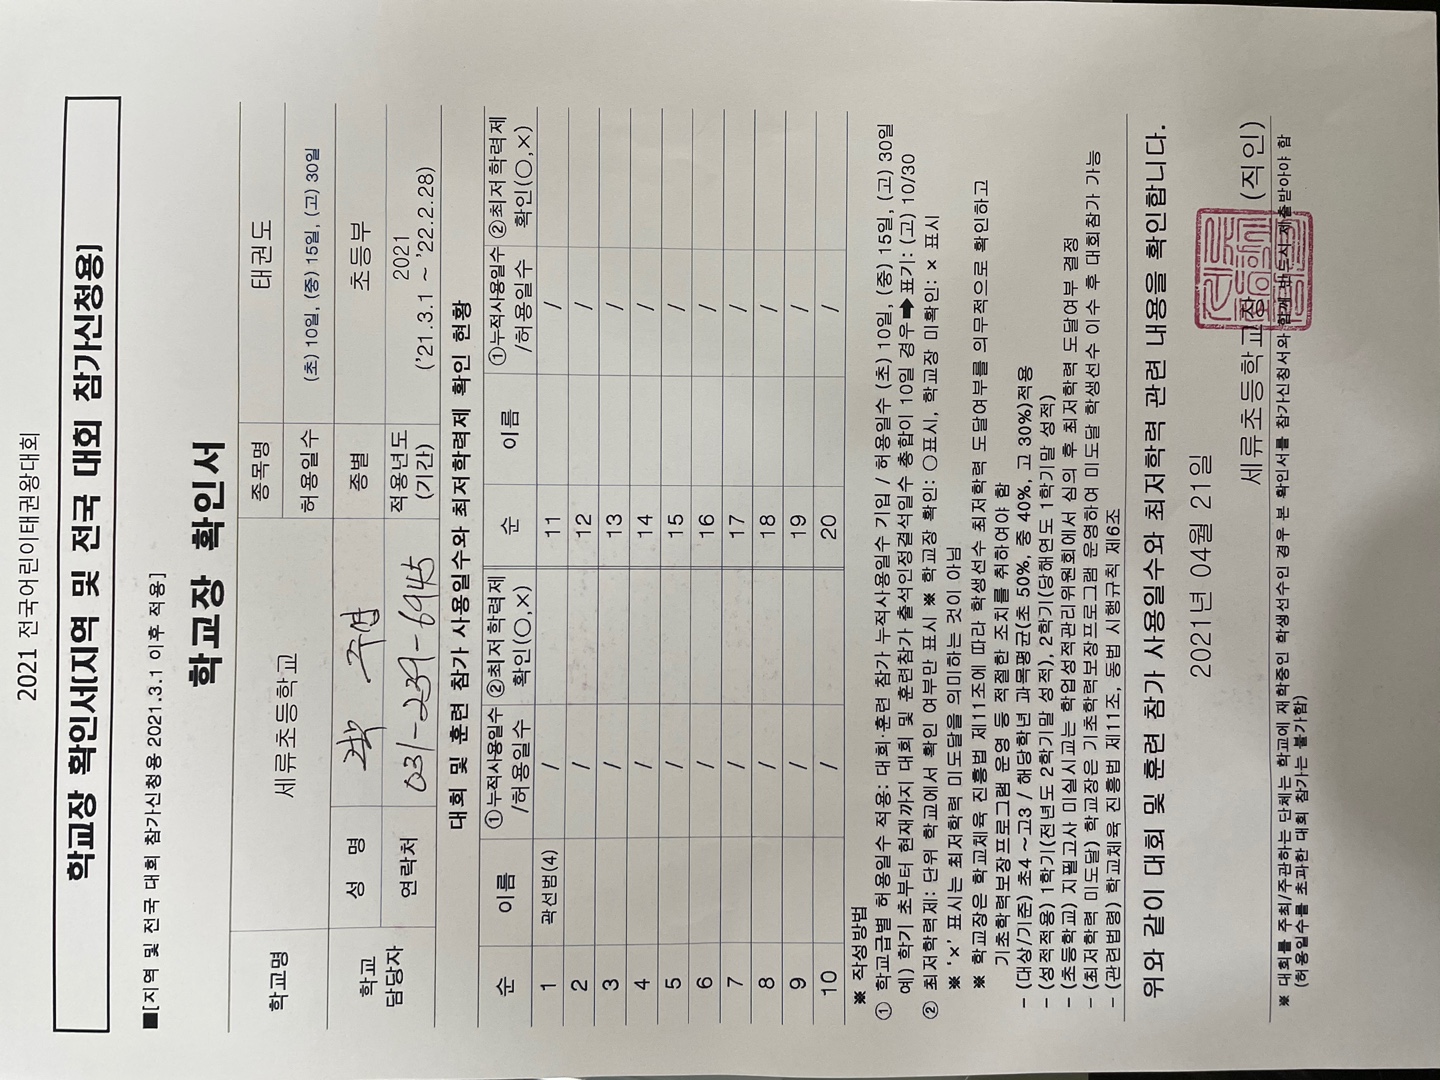 2021 전국어린이태권왕대회
학교장 확인서[지역 및 전국 대회 참가신청용]
■[지역 및 전국 대회 참가신청용 2021.3.1 이후 적용]
학교장 확인서
학교명 세류초등학교 종목명 태권도
허용일수 (초) 10일, (중) 15일, (고) 30일
학교 담당자 성 명 종별 초등부
연락처 031-239-6945 적용년도 (기간) 2021 ('21.3.1 ~ '22.2.28)
대회 및 훈련 참가 사용일수와 최저학력제 확인 현황
순 이름 ①누적사용일수 /허용일수 ②최저학력제 확인(○,×) 순 이름 ①누적사용일수 /허용일수 ②최저학력제 확인(○,×)
1 곽선범(4) / 11 /
2 / 12 /
3 / 13 /
4 / 14 /
5 / 15 /
6 / 16 /
7 / 17 /
8 / 18 /
9 / 19 /
10 / 20 /
※ 작성방법
① 학교급별 허용일수 적용: 대회.훈련 참가 누적사용일수 기입 / 허용일수 (초) 10일, (중) 15일, (고) 30일
예) 학기 초부터 현재까지 대회 및 훈련참가 출석인정결석일수 총합이 10일 경우➡표기: (고) 10/30
② 최저학력제: 단위 학교에서 확인 여부만 표시 ※ 학교장 확인: ○표시, 학교장 미확인: × 표시
※ '×' 표시는 최저학력 미도달을 의미하는 것이 아님
※ 학교장은 학교체육 진흥법 제11조에 따라 학생선수 최저학력 도달여부를 의무적으로 확인하고
기초학력보장프로그램 운영 등 적절한 조치를 취하여야 함
- (대상/기준) 초4 ~고3 / 해당학년 과목평균(초 50%, 중 40%, 고 30%)적용
- (성적적용) 1학기(전년도 2학기말 성적), 2학기(당해연도 1학기말 성적)
- (초등학교) 지필고사 미실시교는 학업성적관리위원회에서 심의 후 최저학력 도달여부 결정
- (최저학력 미도달) 학교장은 기초학력보장프로그램 운영하여 미도달 학생선수 이수 후 대회참가 가능
- (관련법령) 학교체육 진흥법 제11조, 동법 시행규칙 제6조
위와 같이 대회 및 훈련 참가 사용일수와 최저학력 관련 내용을 확인합니다.
2021년 04월 21일
세류초등학교장 (직인)
※ 대회를 주최/주관하는 단체는 학교에 재학중인 학생선수인 경우 본 확인서를 참가신청서와 함께 반드시 제출받아야 함
(허용일수를 초과한 대회 참가는 불가함)